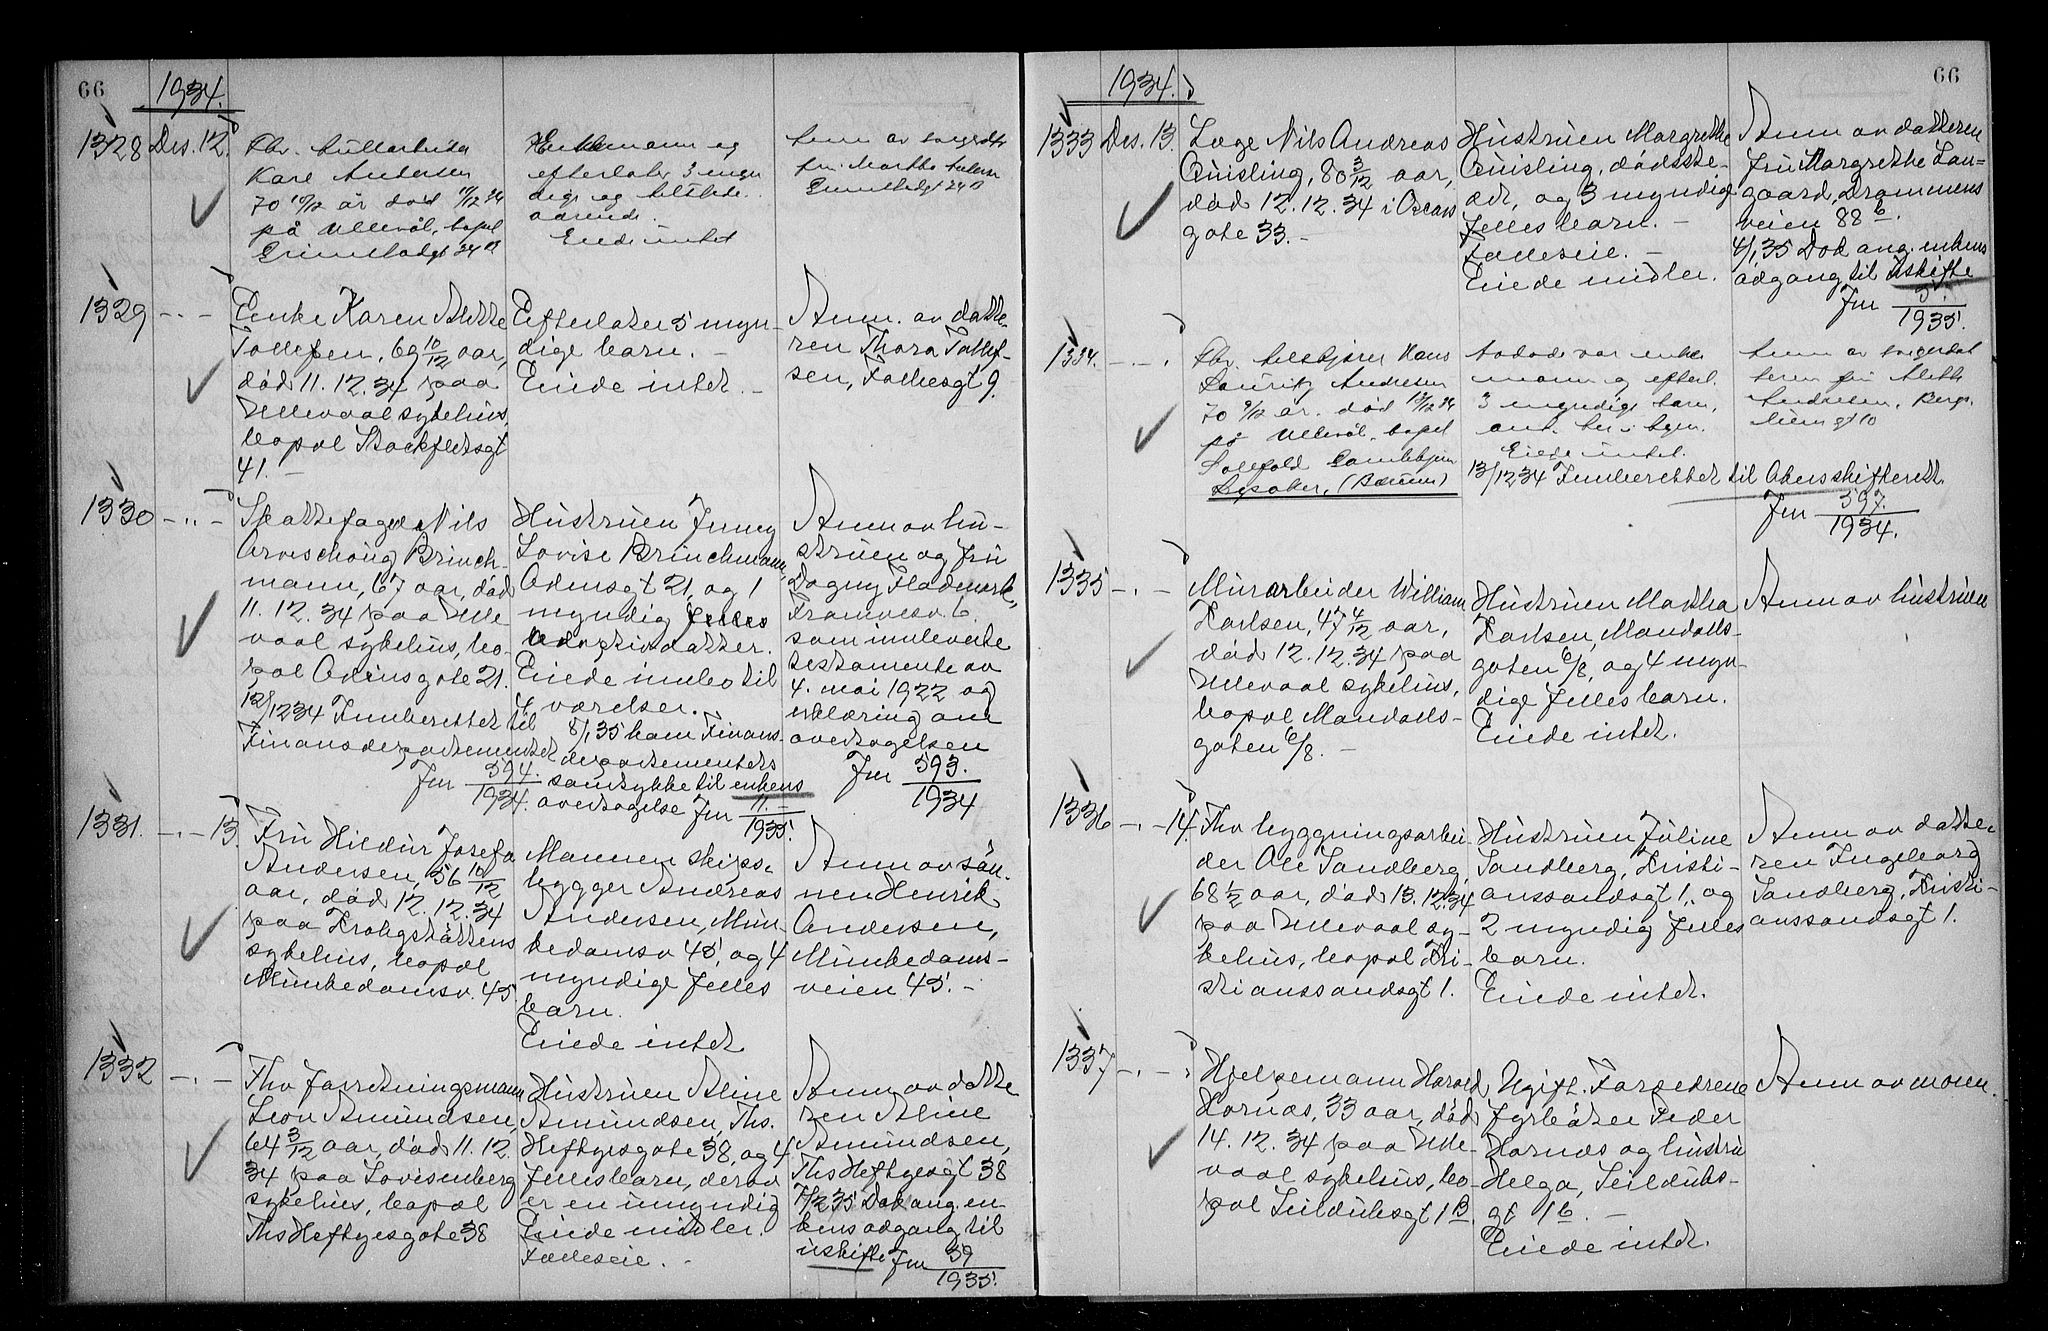 66
1934.
1328 Des. 12.
Karl Andersen
70 10/12 år død 11/12 34
på Ullevål, bopel
Enkemann og
efterlater 3 myn
dige og tilstede
værende.
Eiede intet
1329 -"-
Enke Karen Alette
Tollefsen, 69 10/12 aar,
død 11.12.34 paa
Ullevaal sykehus,
bopæl Stockfletsgt
41. -
Efterlater 5 myn-
dige barn. -
Eiede intet. -
Anm. av datte-
ren Thora Tollef-
sen, Falbesgt 9.
1330 -"-
Skattefoged Nils
Arveschoug Brinch-
mann, 67 aar, død
11.12.34 paa Ulle-
vaal sykehus, bo-
pæl Odinsgote 21.
Hustruen Jenny
Lovise Brinchmann,
Odinsgt 21, og 1
myndig felles
adoptivdatter.
Eiede innbo til
4 værelser.
Anm av hu-
struen og fru
Dagny Flademark,
Framvesv. 6.
som innleverte
testamente av
4. mai 1922 og
erklæring om
overtagelsen
Jnr 593.
1934
12/12 34 Innberettet til
Finansdepartementet
Jnr 594.
1934.
8/1 35 kom Finans-
departementets
samtykke til enkens
overtagelse Jnr 11.-
1935.
1331. -"- 13.
Fru Hildur Josefa
Andersen, 56 10/12
aar, død 12.12.34
paa Krohgstøttens
sykehus, bopæl
Munkedamsv. 45
Mannen skips-
bygger Andreas
Andersen, Mun-
kedamsv 45, og 4
myndige felles
barn.
Eiede intet
Anm av søn-
nen Henrik
Andersen,
Munkedams-
veien 45. -
1332 -"-
Fhv forretningsmann
Leon Amundsen,
64 3/12 aar, død 11.12.
34 paa Lovisenberg
sykehus, bopæl
Ths Heftyesgote 38
Hustruen Aline
Amundsen, Ths.
Heftyesgote 38, og 4
felles barn, derav
er en umyndig
Eiede midler.
Fælleseie. -
Anm av datte
ren Aline
Amundsen,
Ths Heftyesgt 38
7/2 35 Dok ang. en-
kens adgang til
uskifte Jnr 59
1935.
66
1934.
1333 Des. 13.
Læge Nils Andreas
Quisling, 80 3/12 aar,
død 12.12.34 i Oscars
gate 33. -
Hustruen Margrethe
Quisling, dødsste-
det, og 3 myndige
felles barn. -
Fælleseie. -
Eiede midler.
Anm av datteren
fru Margrethe Lan-
gaard, Drammens
veien 88 b.
4/1 35 Dok ang. enkens
adgang til uskifte
Jnr 5.
1935.
1334. -"-
Lauritz Andresen
70 9/12 år. død 12/12 34
på Ullevål, bopel
Lysaker, (Bærum)
avdøde var enke
mann og efterl.
3 myndige barn,
Eiede intet.
13/12 34 Innberettet til Akers skifterett.
Jnr 597.
1934.
1335 -"-
Murarbeider William
Karlsen, 47 4/12 aar,
død 12.12.34 paa
Ullevaal sykehus,
bopæl Mandalls-
gaten 6/8. -
Hustruen Martha
Karlsen, Mandalls-
gaten 6/8, og 4 myn-
dige felles barn.
Eiede intet.
Anm av hustruen
1336 -"- 14.
Fhv bygningsarbei-
der Ole Sandberg,
68 1/2 aar, død 13.12.34
paa Ullevaal sy-
kehus, bopæl Kri-
stianssandsgt 1.
Hustruen Juline
Sandberg, Kristi-
anssandsgt 1., og
2 myndig felles
barn.
Eiede intet.
Anm av datte-
ren Ingeborg
Sandberg, Kristi-
anssandsgt 1.
1337 -"-
Hjelpemann Harald
Hornæs, 33 aar, død
14.12.34 paa Ulle-
vaal sykehus, bo-
pæl Seilduksgt 1 B.
Ugift. Forældrene
fyrbøter Peder
Hornæs og hustru
Helga, Seilduks-
gt 1 b. -
Eiede intet.
Anm av moren.